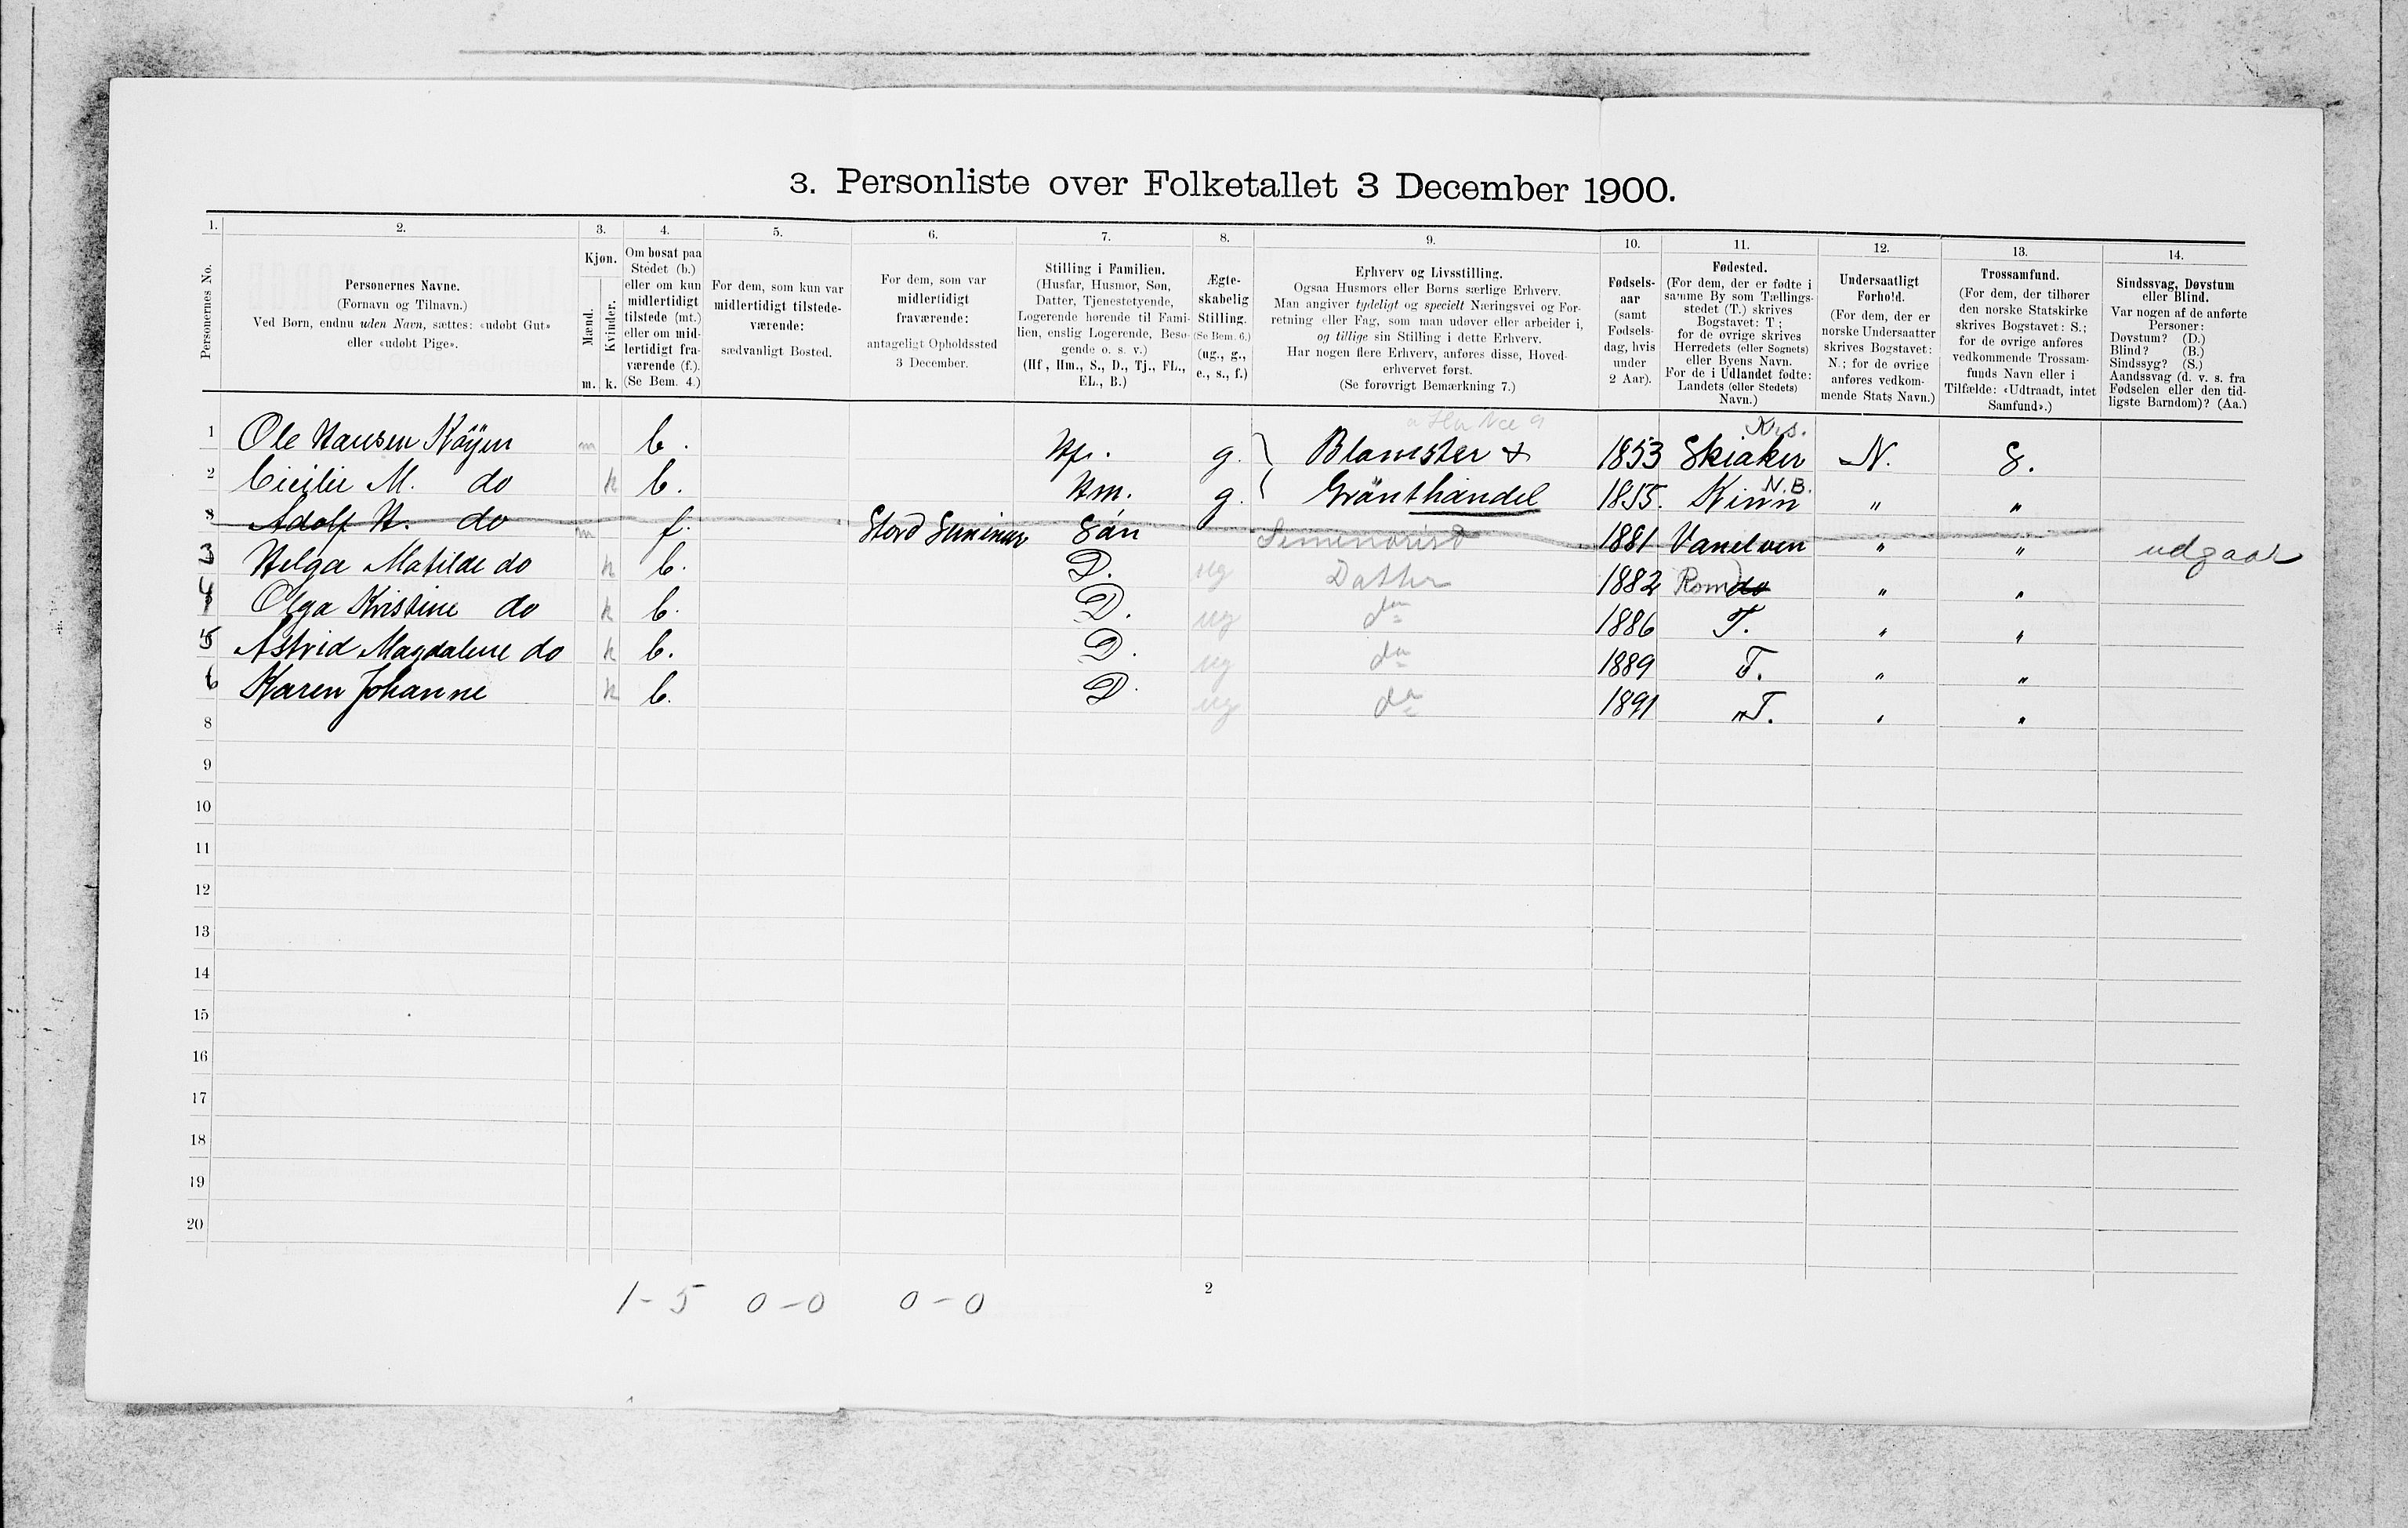 3. Personliste over Folketallet 3 December 1900.
1. 2. 3. 4. 5. 6. 7. 8. 9. 10. 11. 12. 13. 14.
Personernes No.
Personernes Navne.
(Fornavn og Tilnavn.)
Ved Børn, endnu uden Navn, sættes: «udøbt Gut»
eller «udøbt Pige».
Kjøn.
Mænd.
Kvinder.
m. k.
Om bosat paa
Stedet (b.)
eller om kun
midlertidigt
tilstede (mt.)
eller om mid-
lertidigt fra-
værende (f.).
(Se Bem. 4.)
For dem, som kun var
midlertidigt tilstede-
værende:
sædvanligt Bosted.
For dem, som var
midlertidigt
fraværende:
antageligt Opholdssted
3 December.
Stilling i Familien.
(Husfar, Husmor, Søn,
Datter, Tjenestetyende,
Logerende hørende til Fami-
lien, enslig Logerende, Besø-
gende o. s. v.)
(Hf., Hm., S., D., Tj., FL.,
EL., B.)
Ægte-
skabelig
Stilling.
(Se Bem. 6.)
(ug., g.,
e., s., f.)
Erhverv og Livsstilling.
Ogsaa Husmors eller Børns særlige Erhverv.
Man angiver tydeligt og specielt Næringsvei og For-
retning eller Fag, som man udøver eller arbeider i,
og tillige sin Stilling i dette Erhverv.
Har nogen flere Erhverv, anføres disse, Hoved-
erhvervet først.
(Se forøvrigt Bemærkning 7.)
Fødsels-
aar
(samt
Fødsels-
dag, hvis
under
2 Aar).
Fødested.
(For dem, der er fødte i
samme By som Tællings-
stedet (T.) skrives
Bogstavet: T;
for de øvrige skrives
Herredets (eller Sognets)
eller Byens Navn.
For de i Udlandet fødte:
Landets (eller Stedets)
Navn.)
Undersaatligt
Forhold.
(For dem, der er
norske Undersaatter
skrives Bogstavet:
N.; for de øvrige
anføres vedkom-
mende Stats Navn.)
Trossamfund.
(For dem, der tilhører
den norske Statskirke
skrives Bogstavet: S.;
for de øvrige anføres
vedkommende Trossam-
funds Navn eller i
Tilfælde: «Udtraadt, intet
Samfund».)
Sindssvag, Døvstum
eller Blind.
Var nogen af de anførte
Personer:
Døvstum? (D.)
Blind? (B.)
Sindssyg? (S.)
Aandssvag (d. v. s. fra
Fødselen eller den tid-
ligste Barndom)? (Aa.)
Krs.
1 Ole Hansen Köyen m b. Hf. g. Blomster & 1853 Skiaker N. S.
N.B.
2 Cicilie M. do k b. Hm. g. Grönthandel 1855. Kinn " "
3 Adolf H. do m f. Stord Seminar Sön Seminarist 1881 Vanelven " " udgaar
3 Helga Matilde do k b. D. ug Datter 1882 Rom do " "
4 Olga Kristine do k b. D. ug do 1886 T. " "
5 Astrid Magdalene do k b. D. ug do 1889 T. " "
6 Karen Johanne k b. D. ug do 1891 T. " "
8
9
10
11
12
13
14
15
16
17
18
19
20
1-5 0-0 0-0
2